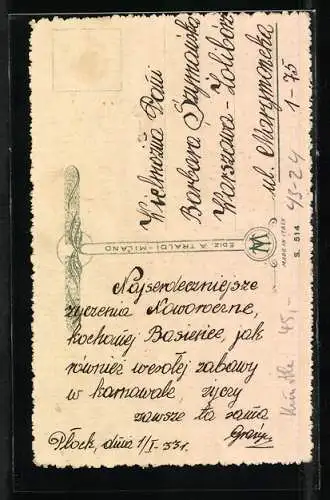 Wielmożna Pani
Barbara Szymańska
Warszawa-Żolibórz
ul. Marymoncka
1-75
43-24
EDIZ. A. TRALDI-MILANO
MADE IN ITALY
S. 514
Najserdeczniejsze
życzenia Noworoczne,
kochanej Basieńce, jak
również wesołej zabawy
w karnawale, życzy
zawsze ta sama
Płock, dnia 1/I. 33 r.
45,-